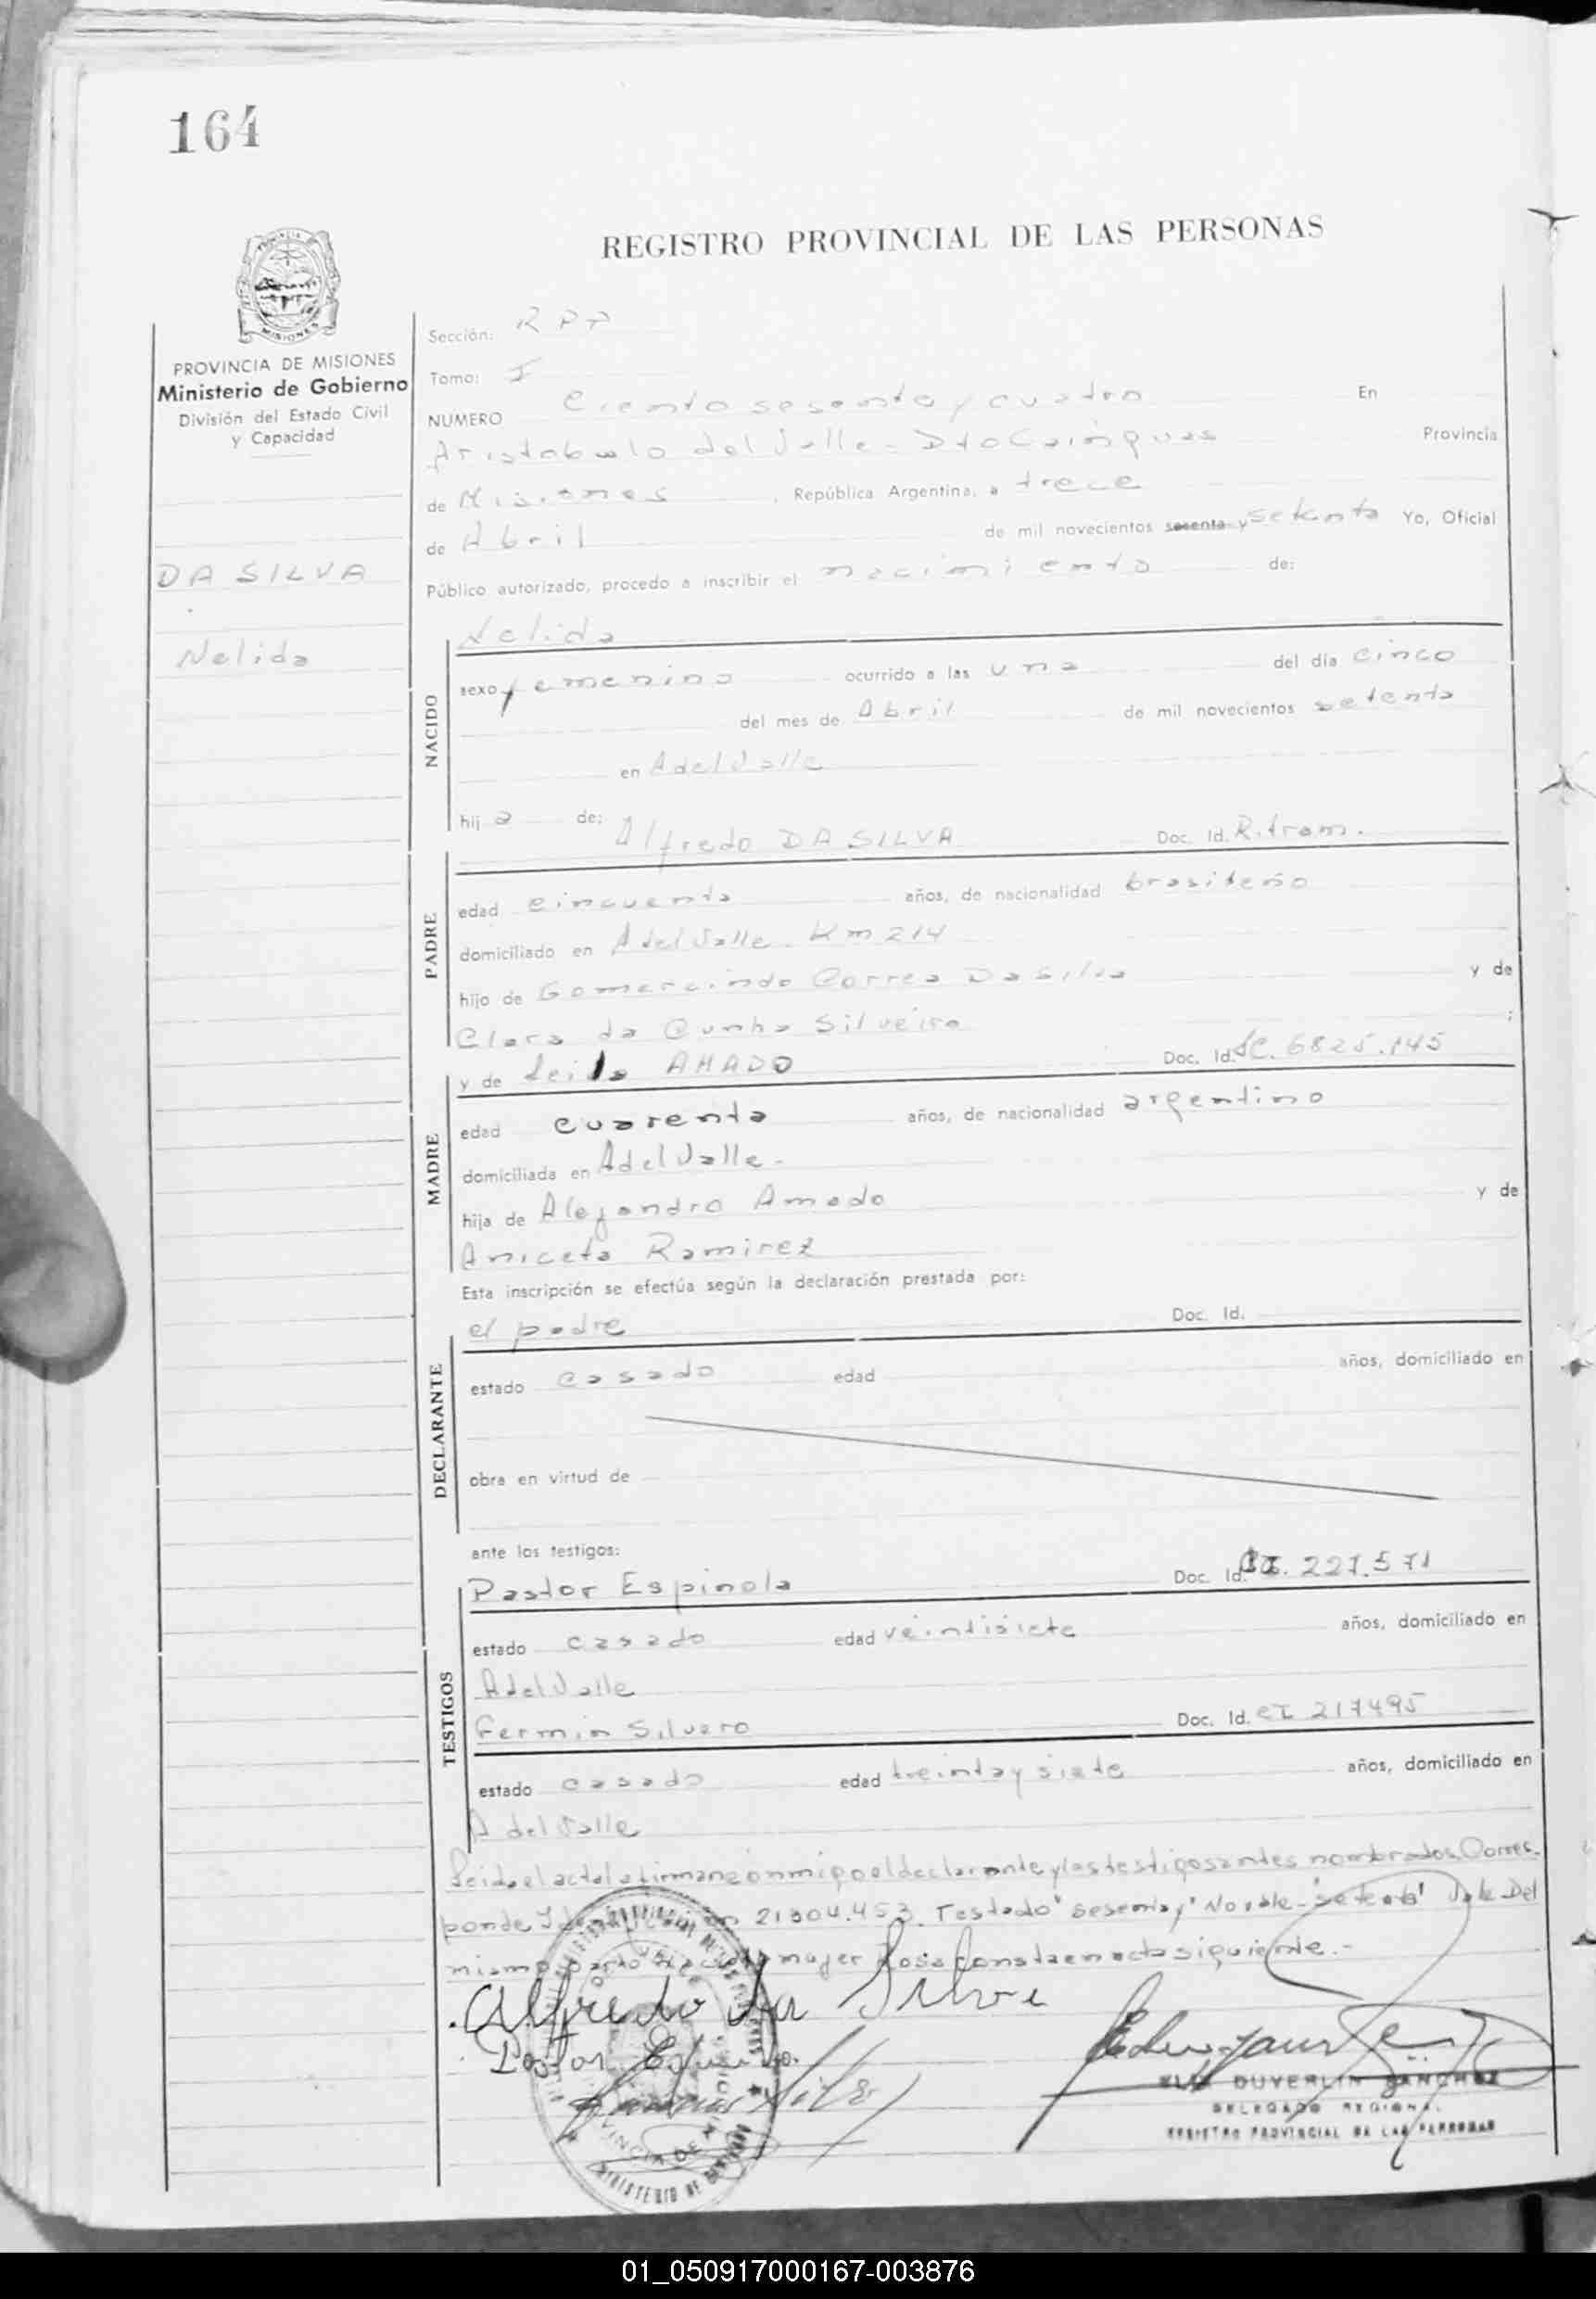 164
REGISTRO PROVINCIAL DE LAS PERSONAS
MISIONES
PROVINCIA DE MISIONES
Ministerio de Gobierno
División del Estado Civil
y Capacidad
DA SILVA
Nelida
Sección: RPP
Tomo: I
NUMERO Ciento sesenta y cuatro En
Aristobulo del Valle - Dto Cainguas Provincia
de Misiones , República Argentina, a trece
de Abril de mil novecientos sesenta y setenta Yo, Oficial
Público autorizado, procedo a inscribir el nacimiento de:
Nelida
NACIDO
sexo femenino ocurrido a las una del día cinco
del mes de Abril de mil novecientos setenta
en A del Valle
hij a de: Alfredo DA SILVA Doc. Id. R. tram.
PADRE
edad cincuenta años, de nacionalidad brasileño
domiciliado en A del Valle Km 214
hijo de Gomercindo Correa Da Silva y de
Clara da Cunha Silveira ;
y de Leida AMADO Doc. Id. LC. 6825.145
MADRE
edad cuarenta años, de nacionalidad argentino
domiciliada en A del Valle -
hija de Alejandro Amado y de
Aniceta Ramirez
Esta inscripción se efectúa según la declaración prestada por:
el padre Doc. Id.
DECLARANTE
estado casado edad años, domiciliado en
obra en virtud de
ante los testigos:
Pastor Espinola Doc. Id. 227.571
TESTIGOS
estado casado edad veintisiete años, domiciliado en
A del Valle
Fermin Silvero Doc. Id. CI 217495
estado casado edad treinta y siete años, domiciliado en
A del Valle
Leida el acta la firman con mi go el declarante y los testigos antes nombrados. Corres-
ponde 21304.453. Testado "sesenta y" No vale - "setenta" Vale Del
mismo parto mujer Rosa Consta en acta siguiente.-
Alfredo da Silva
Pastor
DUVERLIN SANCHEZ
DELEGADO REGIONAL
REGISTRO PROVINCIAL DE LAS PERSONAS
PROVINCIA DE MISIONES
MINISTERIO DE GOBIERNO
01_050917000167-003876